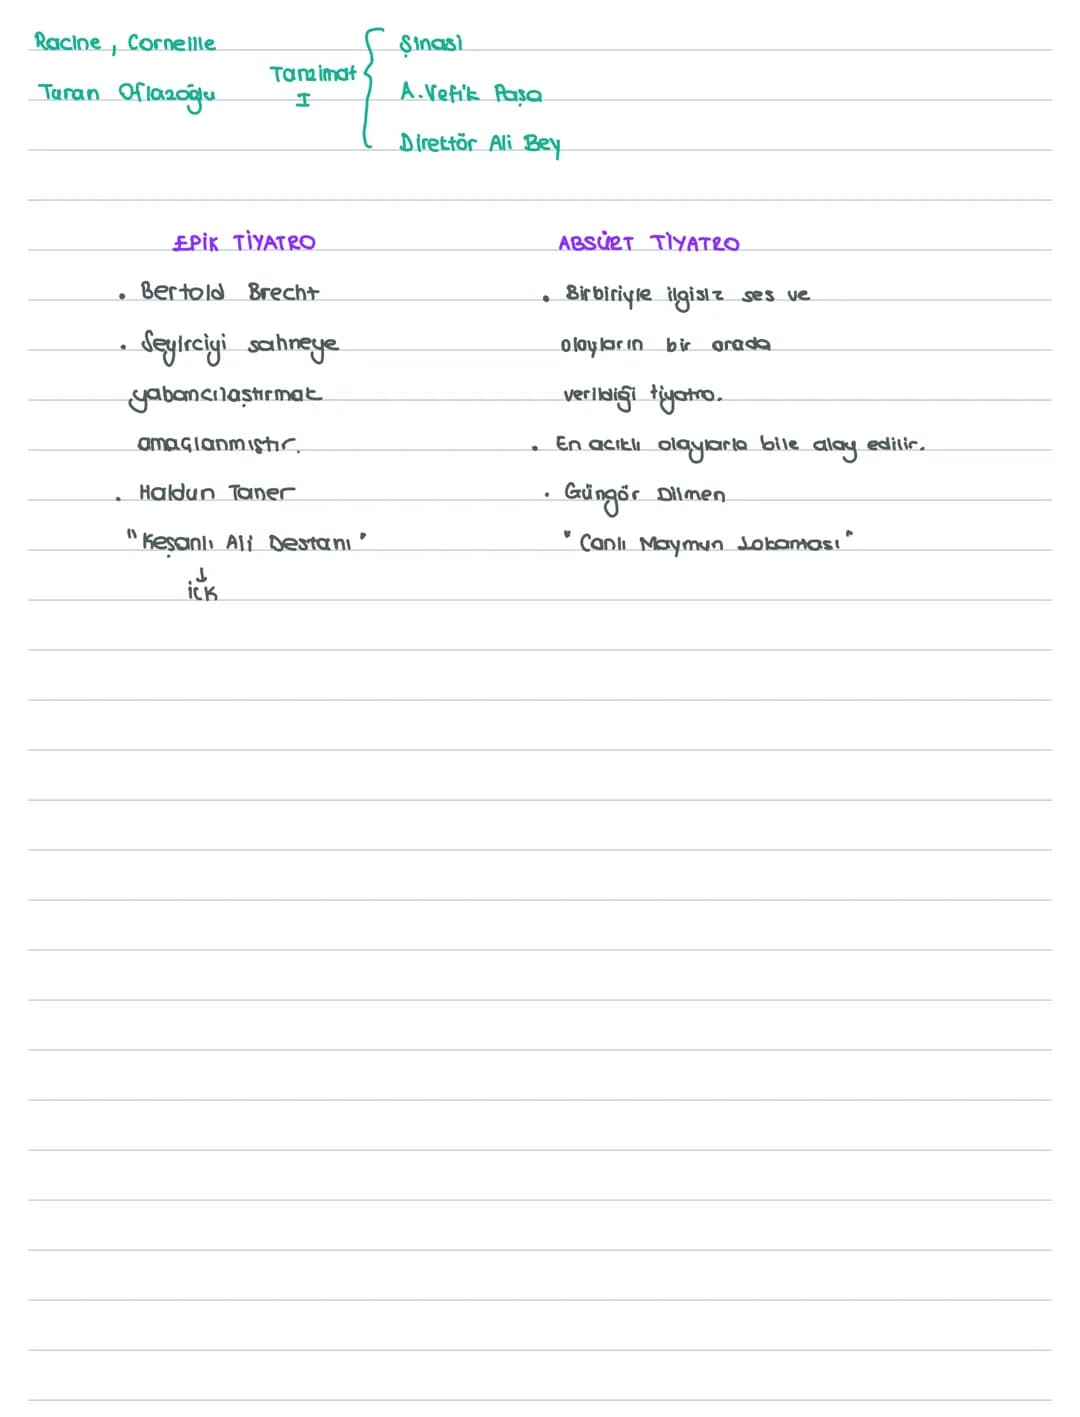 Racine, Corneille
Turan Oflazoğlu
Tanzimat
I
Şinasi
A.Vefik Paşa
Direktör Ali Bey
EPİK TİYATRO
• Bertold Brecht
• Seyirciyi sahneye
yabancılaştırmak
amaçlanmıştır.
• Haldun Taner
"Keşanlı Ali Destanı"
↓
ilk
ABSÜRT TİYATRO
• Birbiriyle ilgisiz ses ve
olayların bir arada
verildiği tiyatro.
• En acıklı olaylarla bile alay edilir.
• Güngör Dilmen
"Canlı Maymun Lokantası"